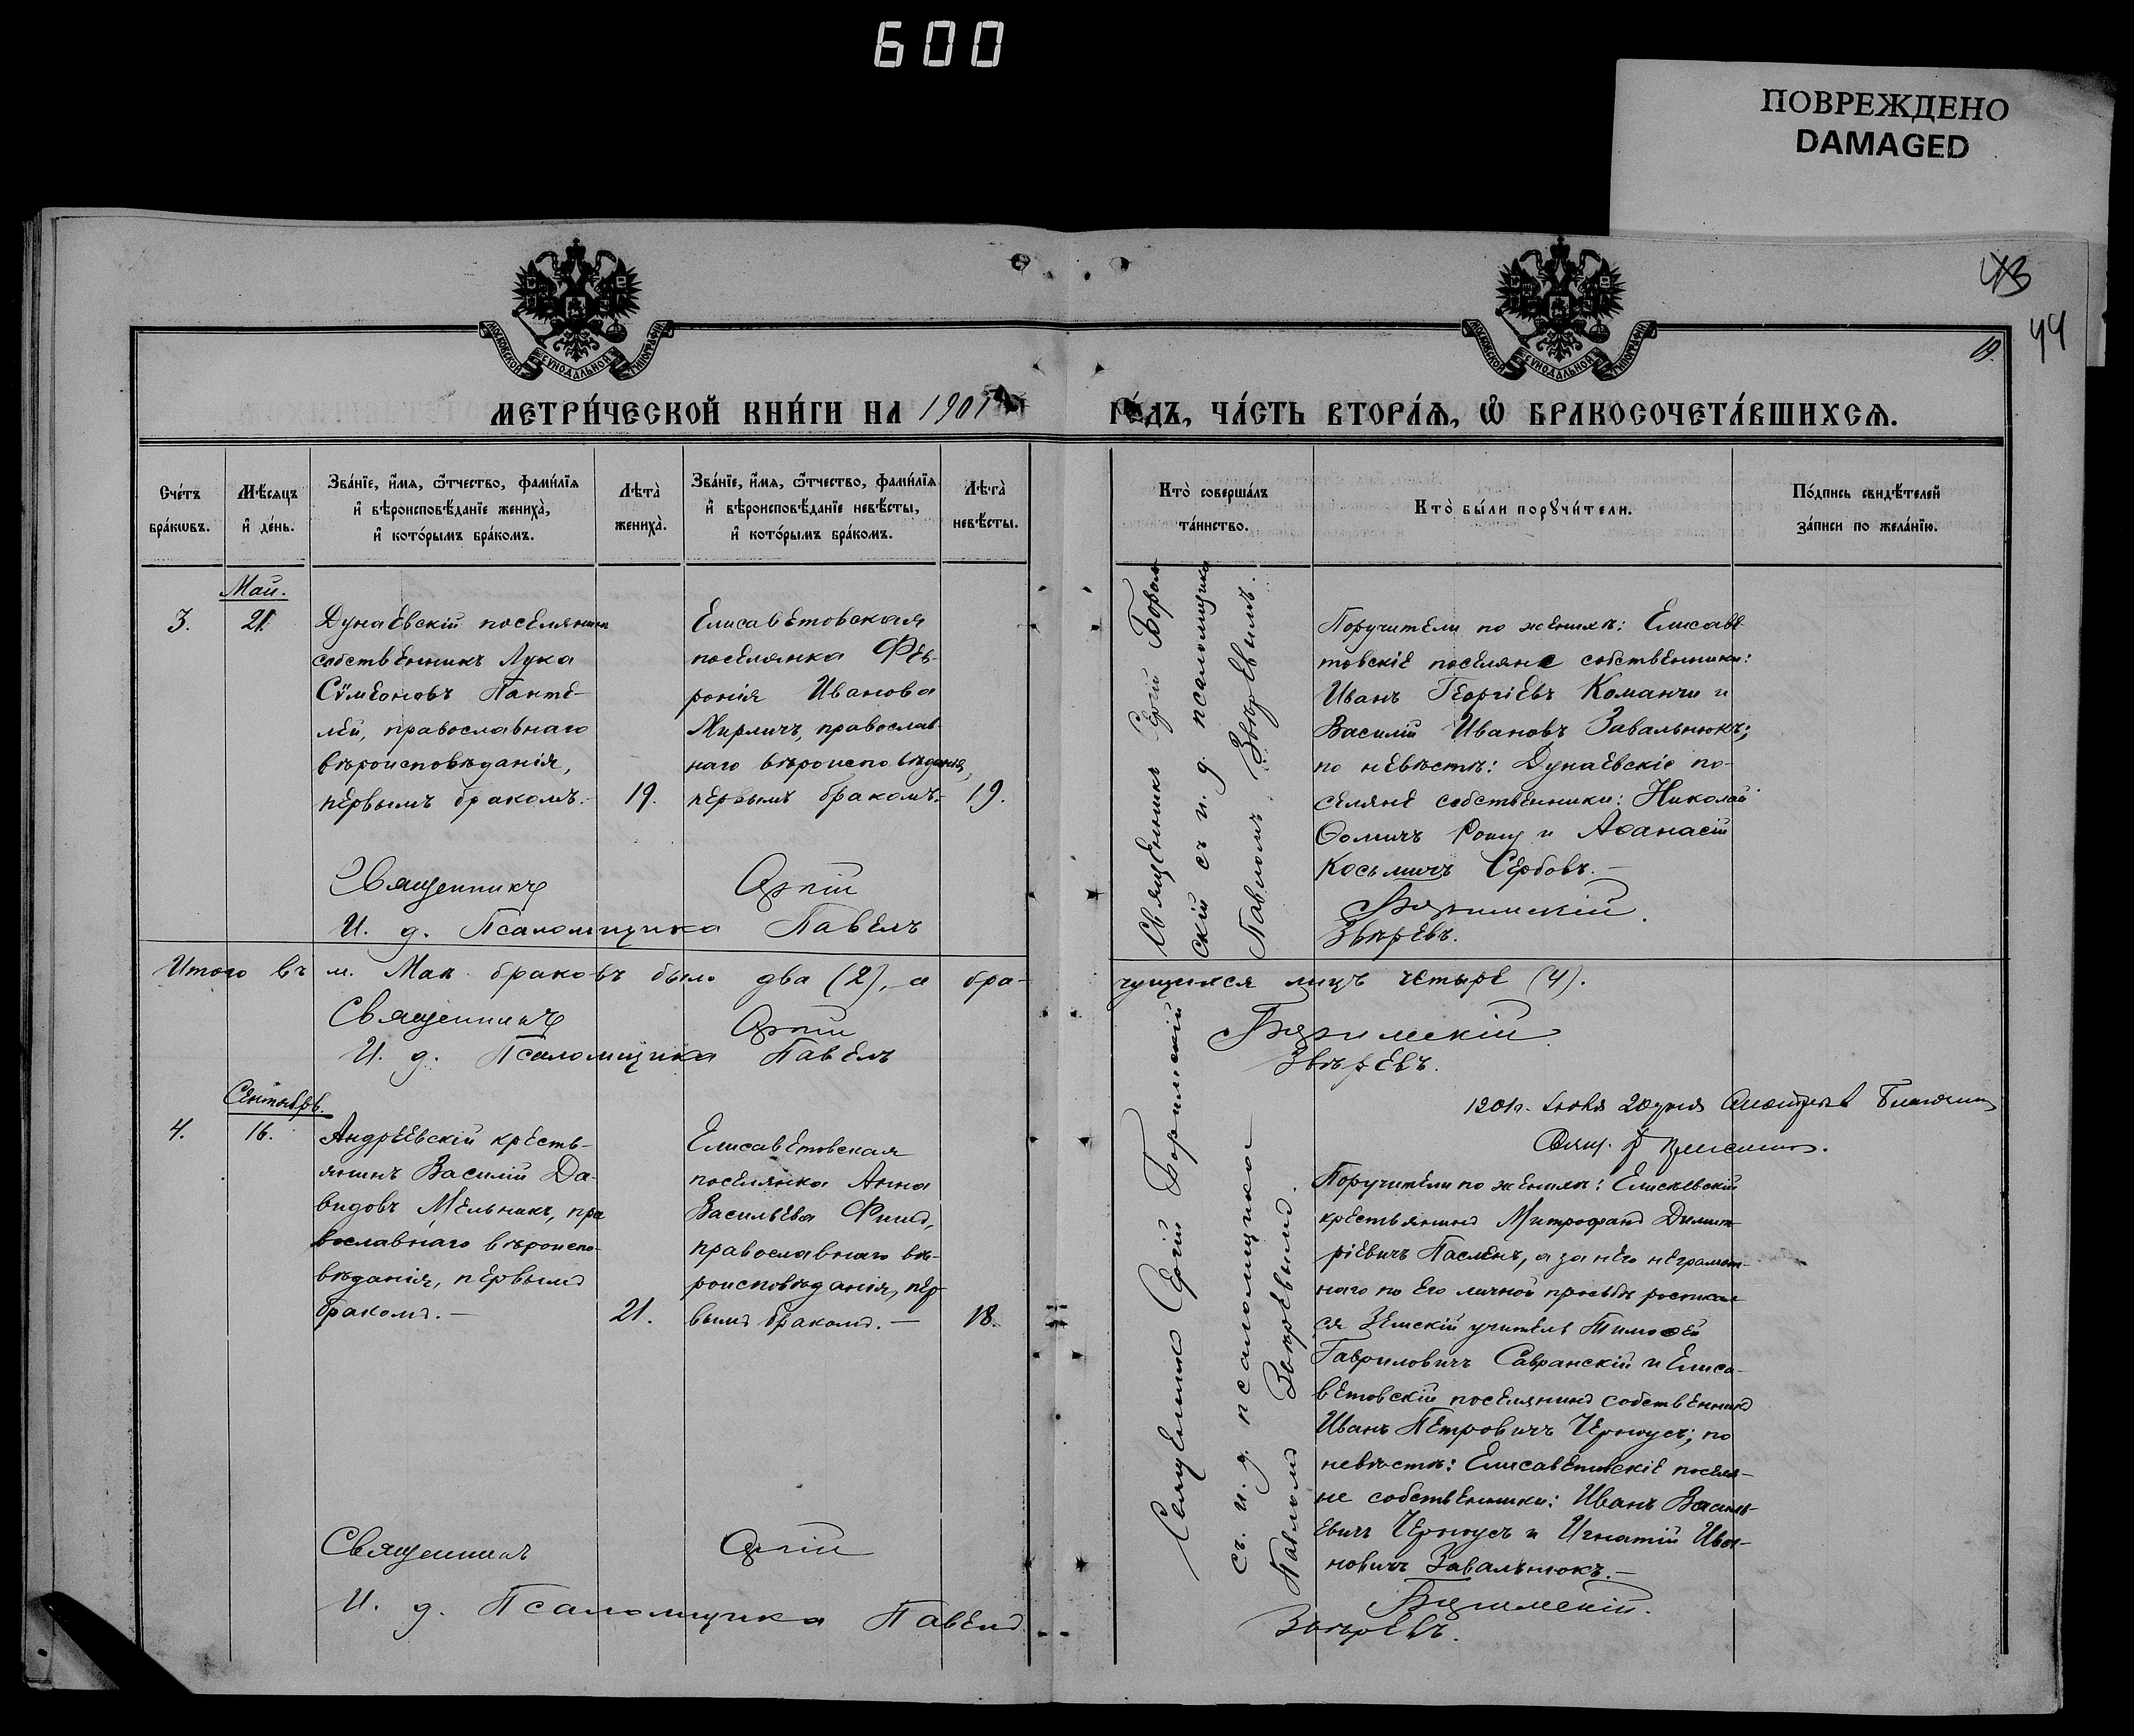 600
ПОВРЕЖДЕНО
DAMAGED
43
44
19.
МОСКОВСКОЙ СѴНОДАЛЬНОЙ ТИПОГРАФІИ
МОСКОВСКОЙ СѴНОДАЛЬНОЙ ТИПОГРАФІИ
МЕТРИ́ЧЕСКОЙ КНИ́ГИ НА 1901
ГО́ДЪ, ЧА́СТЬ ВТОРА́Ѧ, Ѽ БРАКОСОЧЕТА́ВШИХСѦ.
Сче́тъ
бра́кѡвъ.
Мѣ́сяцъ
и҆ де́нь.
Зва́нїе, и҆́мѧ, ѻ҆́тчество, фами́лїѧ
и҆ вѣроисповѣ́данїе жениха̀,
и҆ кото́рымъ бра́комъ.
Лѣта̀
жениха̀.
Зва́нїе, и҆́мѧ, ѻ҆́тчество, фами́лїѧ
и҆ вѣроисповѣ́данїе невѣ́сты,
и҆ кото́рымъ бра́комъ.
Лѣта̀
невѣ́сты.
Кто̀ соверша́лъ
та́инство.
Кто̀ бы́ли порꙋчи́тели.
По́дпись свидѣ́телей
за́писи по жела́нїю.
Май.
3.
21.
Дунаевскій поселянинъ
собственникъ Лука
Сѵмеоновъ Панте-
лей, православнаго
вѣроисповѣданія,
первымъ бракомъ.-
19.
Елисаветовская
поселянка Фев-
ронія Иванова
Кирличъ, православ-
наго вѣроисповѣданія,
первымъ бракомъ.-
19.
Священникъ Сергій
скій съ и. д. псаломщика
Павломъ Звѣревымъ.
Поручители по женихѣ: Елисаве-
товскіе поселяне собственники:
Иванъ Георгіевъ Команчи и
Василій Ивановъ Завальнюкъ;
по невѣстѣ: Дунаевскіе по-
селяне собственники: Николай
Ѳомичъ Рошу и Аѳанасій
Косьмичъ Сербовъ.—
Священникъ Сергій
И. д. Псаломщика Павелъ
Звѣревъ.
Итого въ м. Маѣ браковъ было два (2), а бра-
чущихся лицъ четыре (4).
Священникъ Сергій
И. д. Псаломщика Павелъ
Звѣревъ.
1901г. Іюня 20 дня
Свящ.
Сентябрь.
4.
16.
Андреевскій кресть-
янинъ Василій Да-
видовъ Мельникъ, пра-
вославнаго вѣроиспо-
вѣданія, первымъ
бракомъ.—
21.
Елисаветовская
поселянка Анна
Васильева
православнаго вѣ-
роисповѣданія, пер-
вымъ бракомъ.—
18.
Священникъ Сергій
съ и. д. псаломщика
Павломъ Звѣревымъ.
Поручители по женихѣ: Елисѣевскій
крестьянинъ Митрофанъ Димит-
ріевичъ Пасленъ, а за него неграмот-
наго по его личной просьбѣ росписал-
ся Земскій учитель Тимоѳей
Гавриловичъ Савранскій и Елиса-
ветовскій поселянинъ собственникъ
Иванъ Петровичъ Черноусъ; по
невѣстѣ: Елисаветовскіе поселя-
не собственники: Иванъ Василь-
евичъ Черноусъ и Игнатій Ива-
новичъ Завальнюкъ.—
Священникъ Сергій
И. д. Псаломщика Павелъ
Звѣревъ.